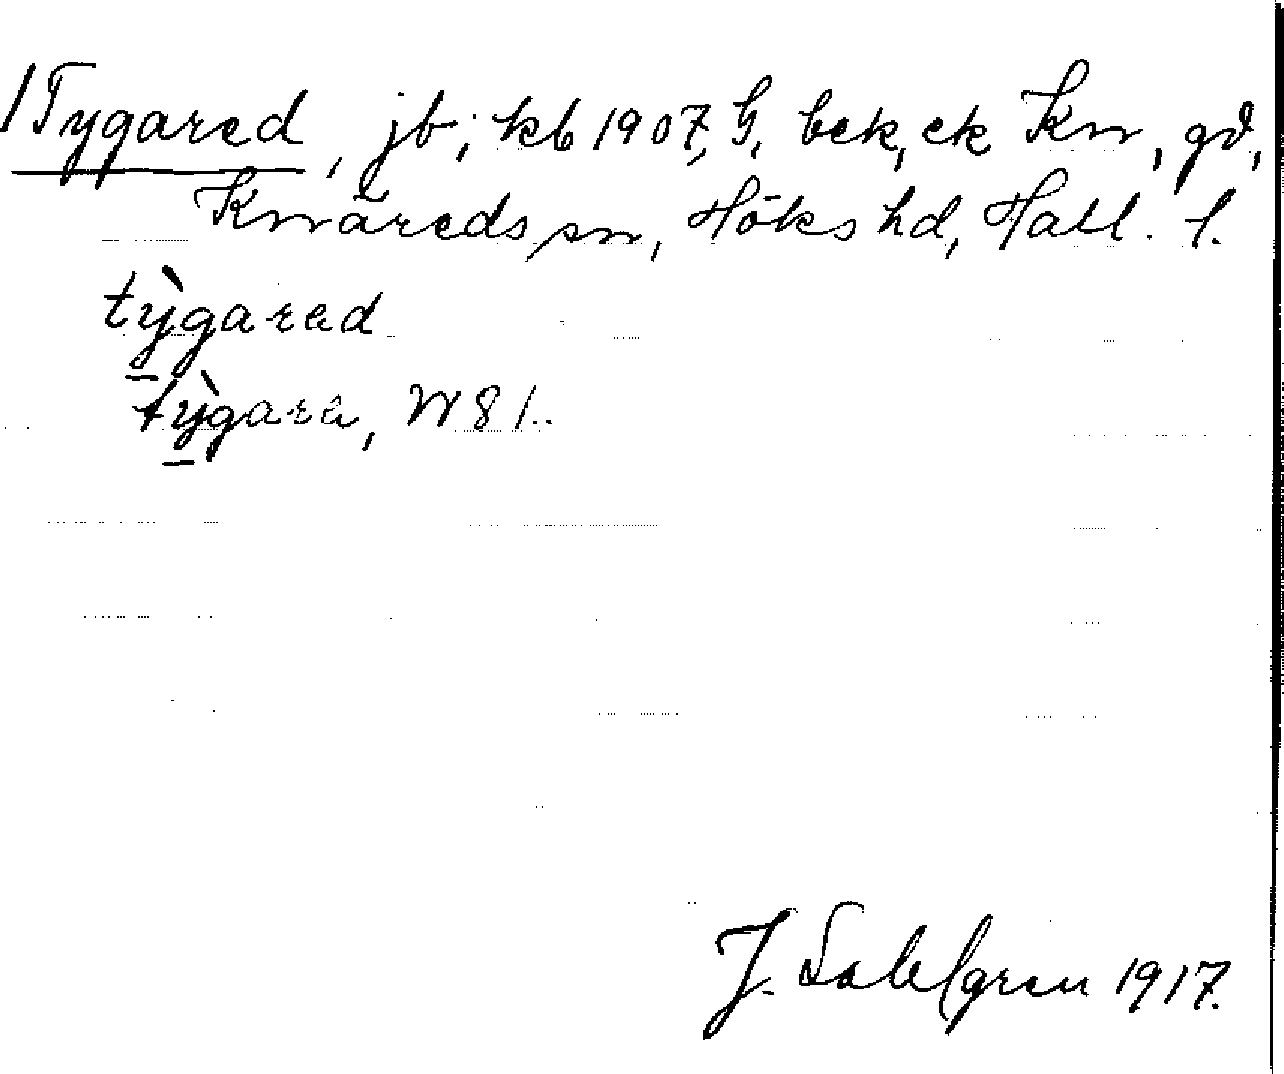 1 Tygared, jb; kb 1907, G, bek, ek Kn, gd,
Knäreds sn, Höks hd, Hall. l.
tỳgarad
tỳgara, W 81.
J. Sahlgren 1917.